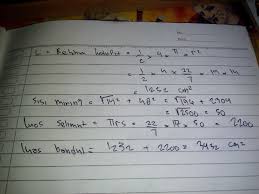 L = Belahan = 1/2 × 4 × π × r²
= 1/2 × 4 × 22/7 × 14 × 14
= 1232 cm²
Sisi miring = √14² + 48² = √196 + 2304
= √2500 = 50
Luas selimut = πrs = 22/7 × × 50 = 2200
Luas bandul = 1232 + 2200 = 3432 cm²